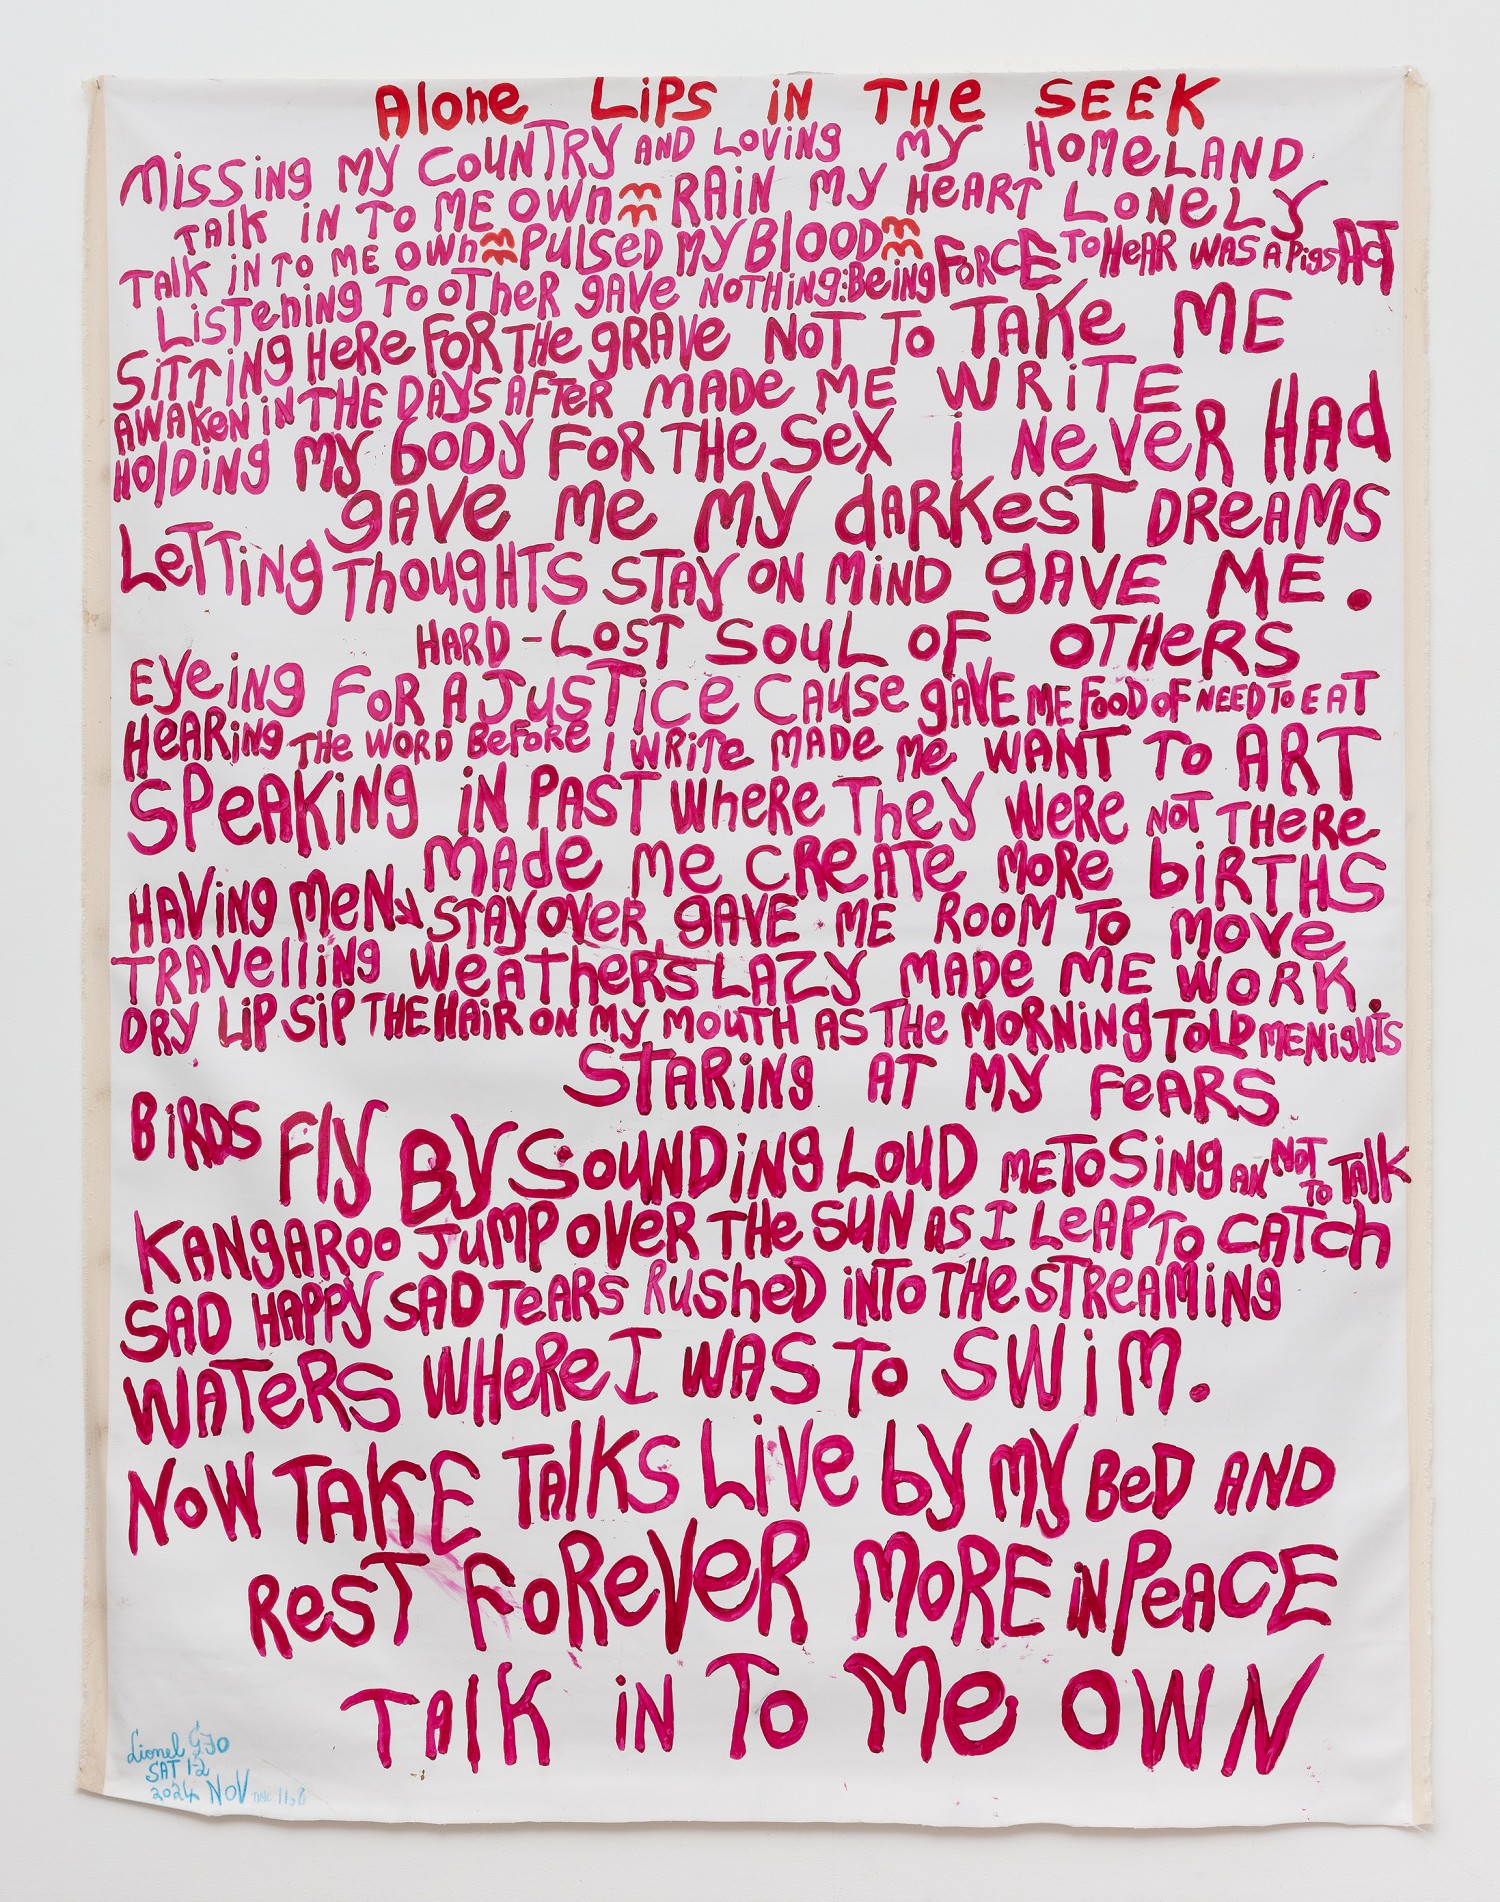 Alone LiPS iN THe SEEK
MiSSiNg MY COUNTRY AND LOViNg MY HOMeLAND
TAlK iN TO ME OWN RAiN MY HeART LONELY
TAlK iNTO ME OWN PULSED MY BlOOD
LiSTeNiNg TO OTHeR gAVe NOTHiNg:BeiNg FORCE TO HeAR WAS A PigS ACT
SiTTiNg HeRe FOR THe gRAVe NOT TO TAKe ME
AWAKeN iN THE DAYS AFTeR MADe ME WRiTE
HOlDiNg MY bODY FOR THe SeX i NeVeR HAd
gAVe Me MY dARKeST DReAMS
LeTTiNg THougHTS STAY ON MiND gAVE ME.
HARD-LOST SOUL OF OTHeRS
EYeiNg FOR A JusTice CAuSe gAVE ME FOOD OF NEED TO EAT
HeARiNg THe WORD BeFoRe I WRiTe MADe Me WANT TO ART
SPeAKiNg iN PAST WheRe TheY WeRe NOT THeRe
MAde Me CReATe MoRe biRTHS
HAViNg MeN STAY OVeR gAVE ME ROOM TO MOVe
TRAVelliNg WeATheRS LAZY MADe ME WORK.
DRY LiP SiP THE HAiR ON MY MOuTH AS THe MoRNiNg TOLD ME NigHTS
STARiNg AT MY FeARS
BiRDS FlY BY SOUNDiNg LOUD ME TO SiNg AN NOT TO TAlK
KANgAROO JuMP OVeR THe SUN AS I LeAP TO CATCh
SAD HAPPY SAD TeARS RuSheD iNTO THe STReAMiNg
WATeRS WHeRe I WAS TO SWiM.
NOW TAKE TAlKS LiVe bY MY BeD AND
ReST FoReVeR MORE iN PeACE
TAlK iN TO Me OWN
Lionel
SAT 12
2024 NOV